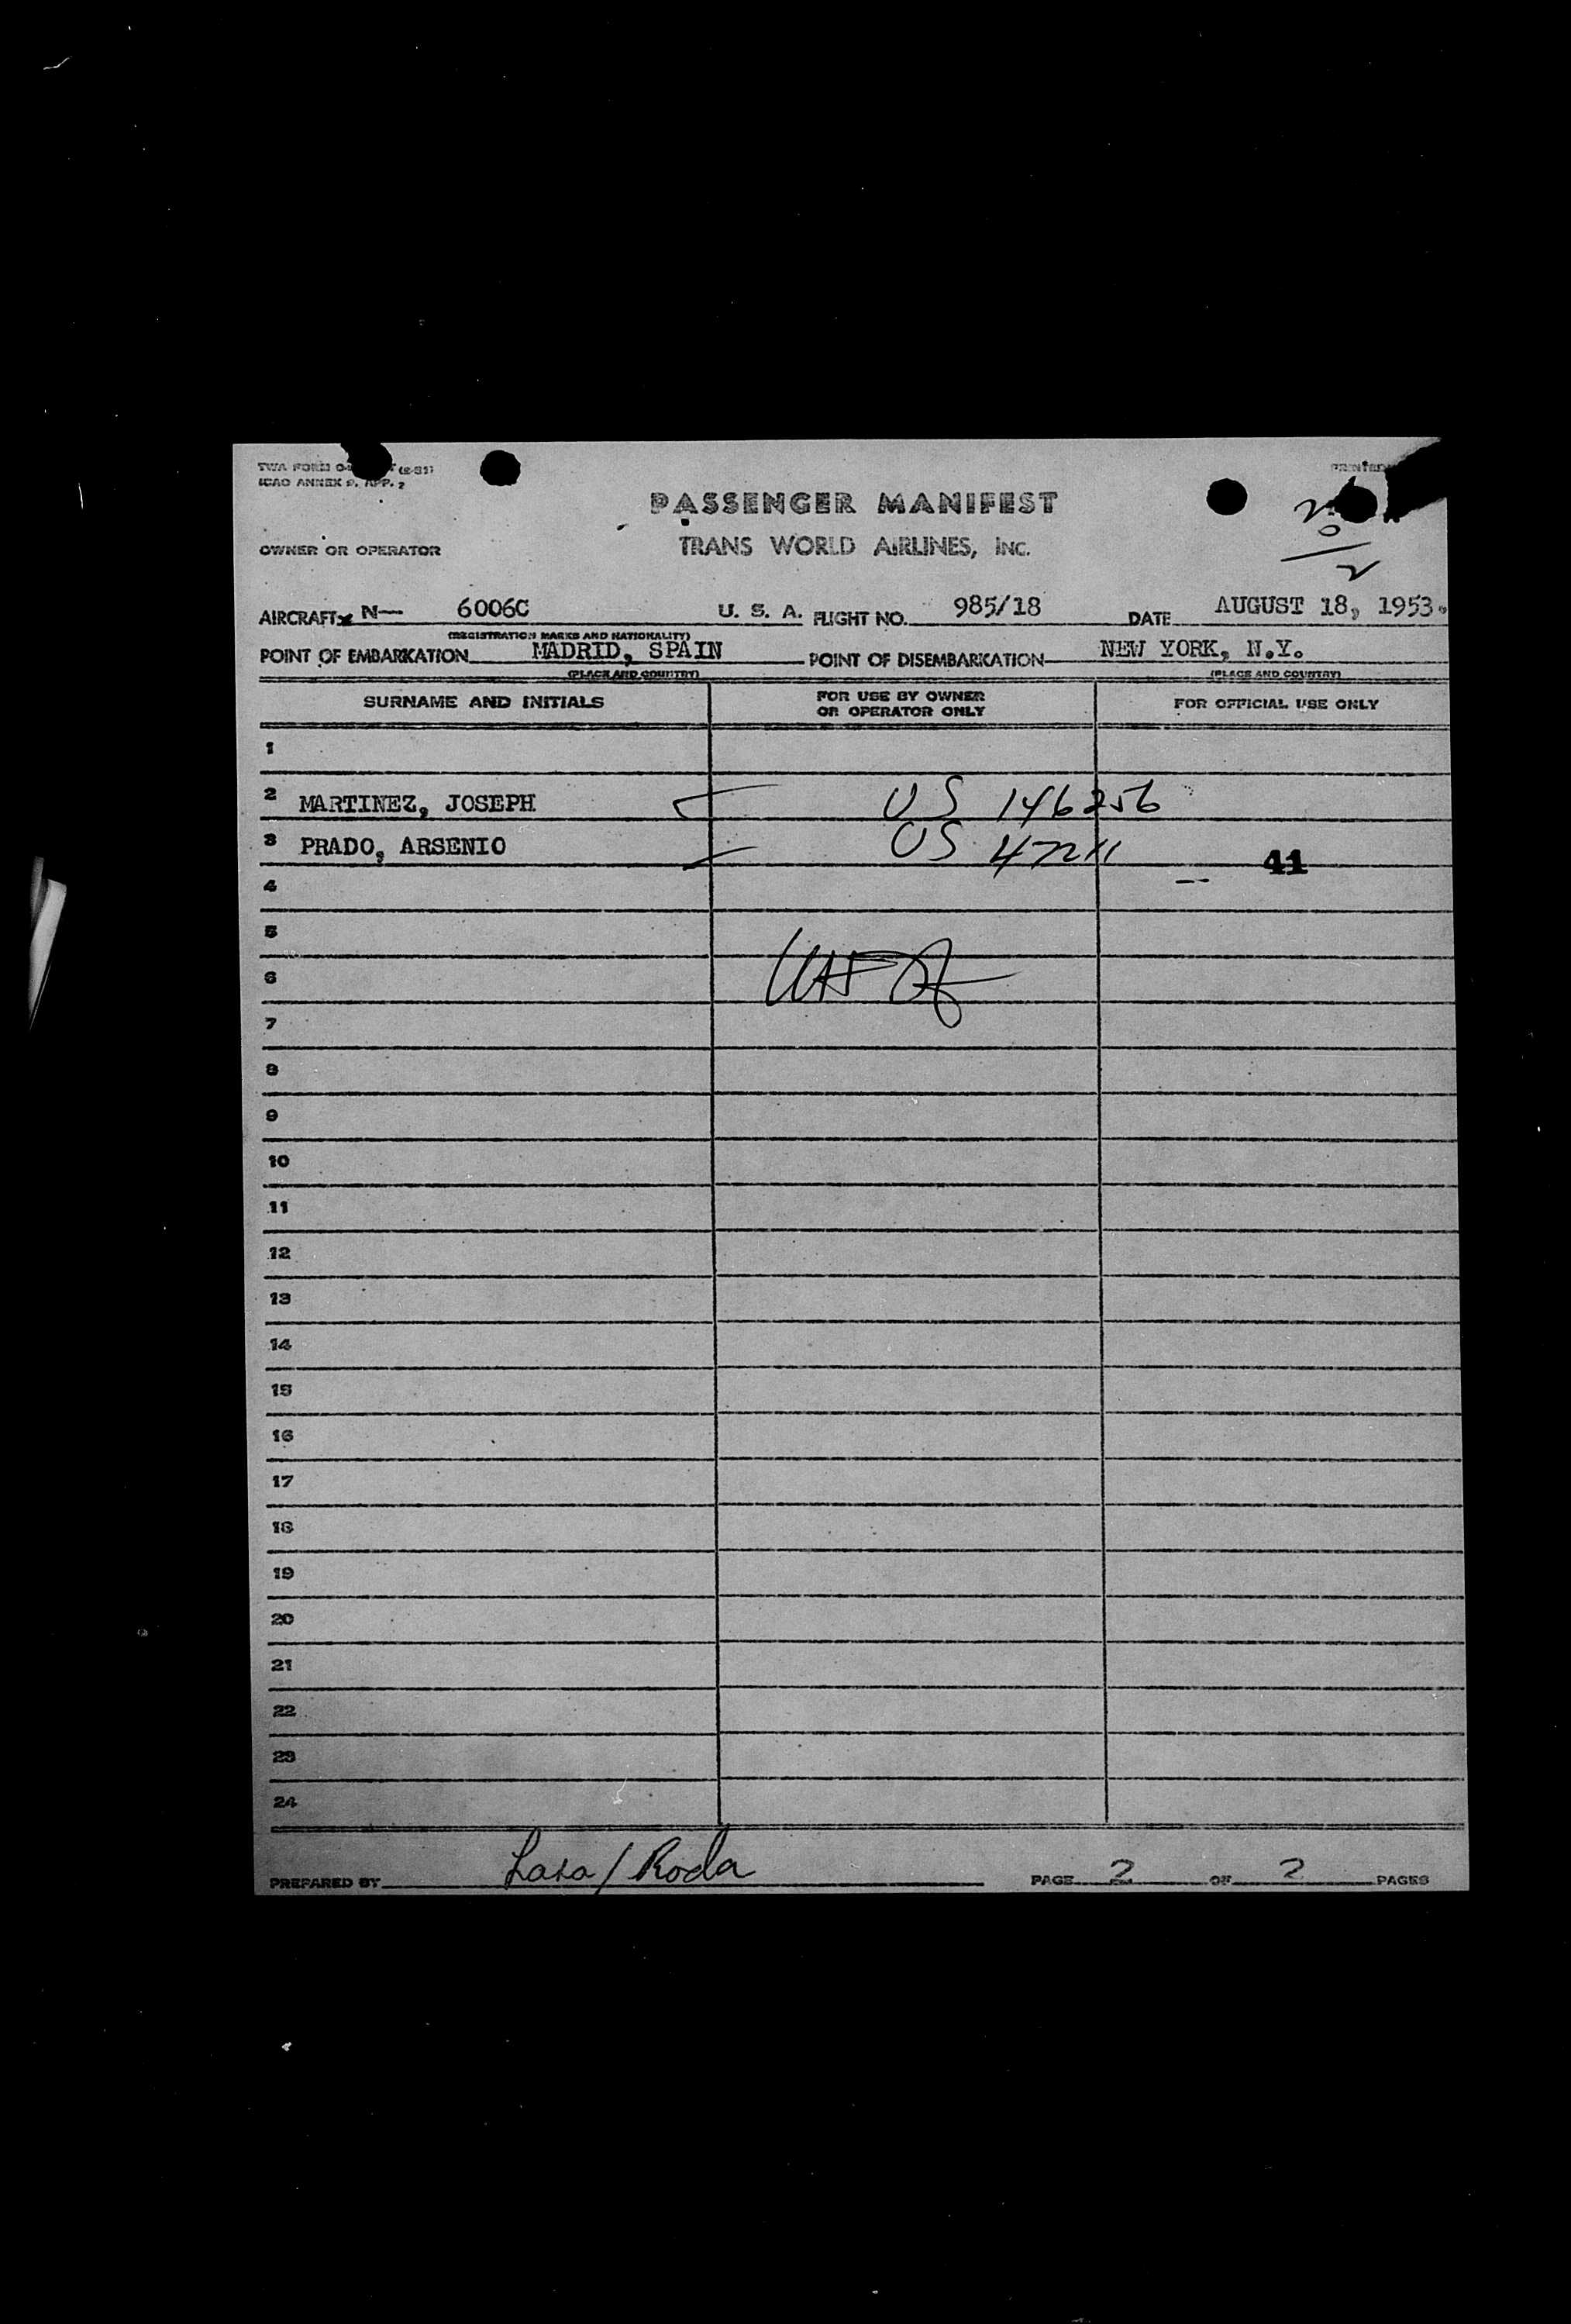 TWA FORM (2-51)
ICAO ANNEX 9, APP. 2
PRINTED
PASSENGER MANIFEST
OWNER OR OPERATOR TRANS WORLD AIRLINES, INC.
AIRCRAFT N— 6006C U. S. A. FLIGHT NO. 985/18 DATE AUGUST 18, 1953.
(REGISTRATION MARKS AND NATIONALITY)
POINT OF EMBARKATION MADRID, SPAIN POINT OF DISEMBARKATION NEW YORK, N.Y.
(PLACE AND COUNTRY) (PLACE AND COUNTRY)
SURNAME AND INITIALS FOR USE BY OWNER OR OPERATOR ONLY FOR OFFICIAL USE ONLY
1
2 MARTINEZ, JOSEPH US 146256
3 PRADO, ARSENIO US 47211
41
4
5
6
7
8
9
10
11
12
13
14
15
16
17
18
19
20
21
22
23
24
PREPARED BY / Roda PAGE 2 OF 2 PAGES